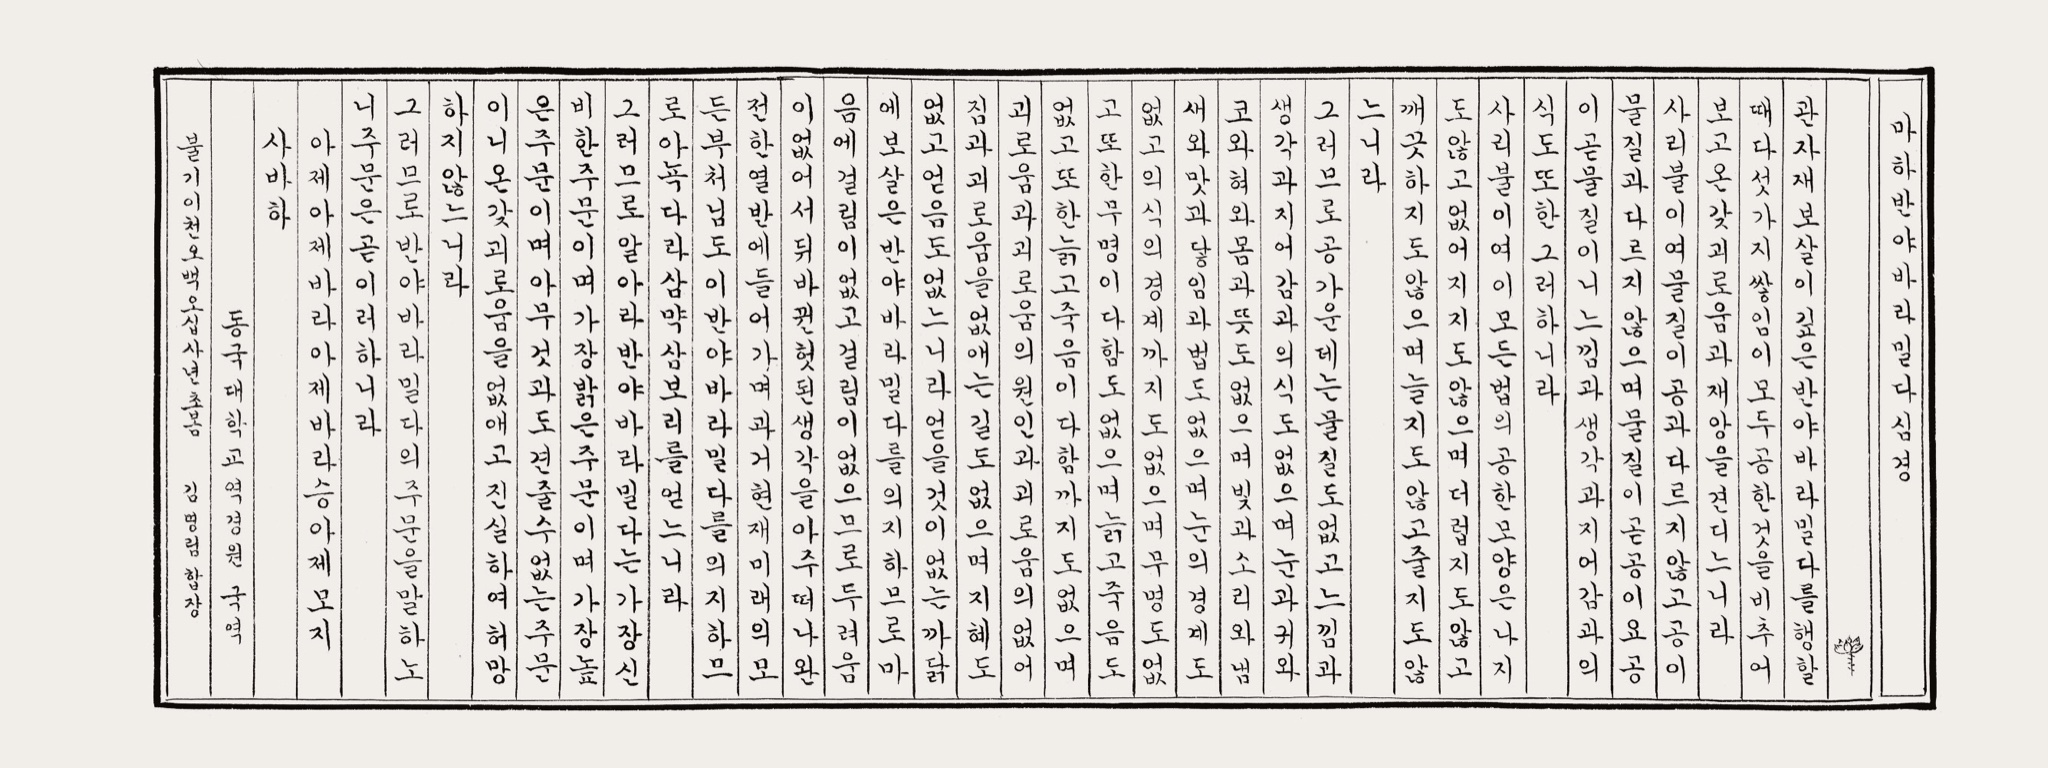 마하반야바라밀다심경
관자재보살이깊은반야바라밀다를행할
때다섯가지쌓임이모두공한것을비추어
보고온갖괴로움과재앙을건디느니라
사리불이여물질이공과다르지않고공이
물질과다르지않으며물질이곧공이요공
이곧물질이니느낌과생각과지어감과의
식도또한그러하니라
사리불이여이모든법의공한모양은나지
도않고없어지지도않으며더럽지도않고
깨끗하지도않으며늘지도않고줄지도않
느니라
그러므로공가운데는물질도없고느낌과
생각과지어감과의식도없으며눈과귀와
코와혀와몸과뜻도없으며빛과소리와냄
새와맛과닿임과법도없으며눈의경계도
없고의식의경계까지도없으며무명도없
고또한무명이다함도없으며늙고죽음도
없고또한늙고죽음이다함까지도없으며
괴로움과괴로움의원인과괴로움의없어
짐과괴로움을없애는길도없으며지혜도
없고얻음도없느니라얻을것이없는까닭
에보살은반야바라밀다를의지하므로마
음에걸림이없고걸림이없으므로두려움
이없어서뒤바뀐헛된생각을아주떠나완
전한열반에들어가며과거현재미래의모
든부처님도이반야바라밀다를의지하므
로아뇩다라삼먁삼보리를얻느니라
그러므로알아라반야바라밀다는가장신
비한주문이며가장밝은주문이며가장높
은주문이며아무것과도견줄수없는주문
이니온갖괴로움을없애고진실하여허망
하지않느니라
그러므로반야바라밀다의주문을말하노
니주문은곧이러하니라
아제아제바라아제바라승아제모지
사바하
동국대학교역경원 국역
불기이천오백오십사년초봄 김명림합장